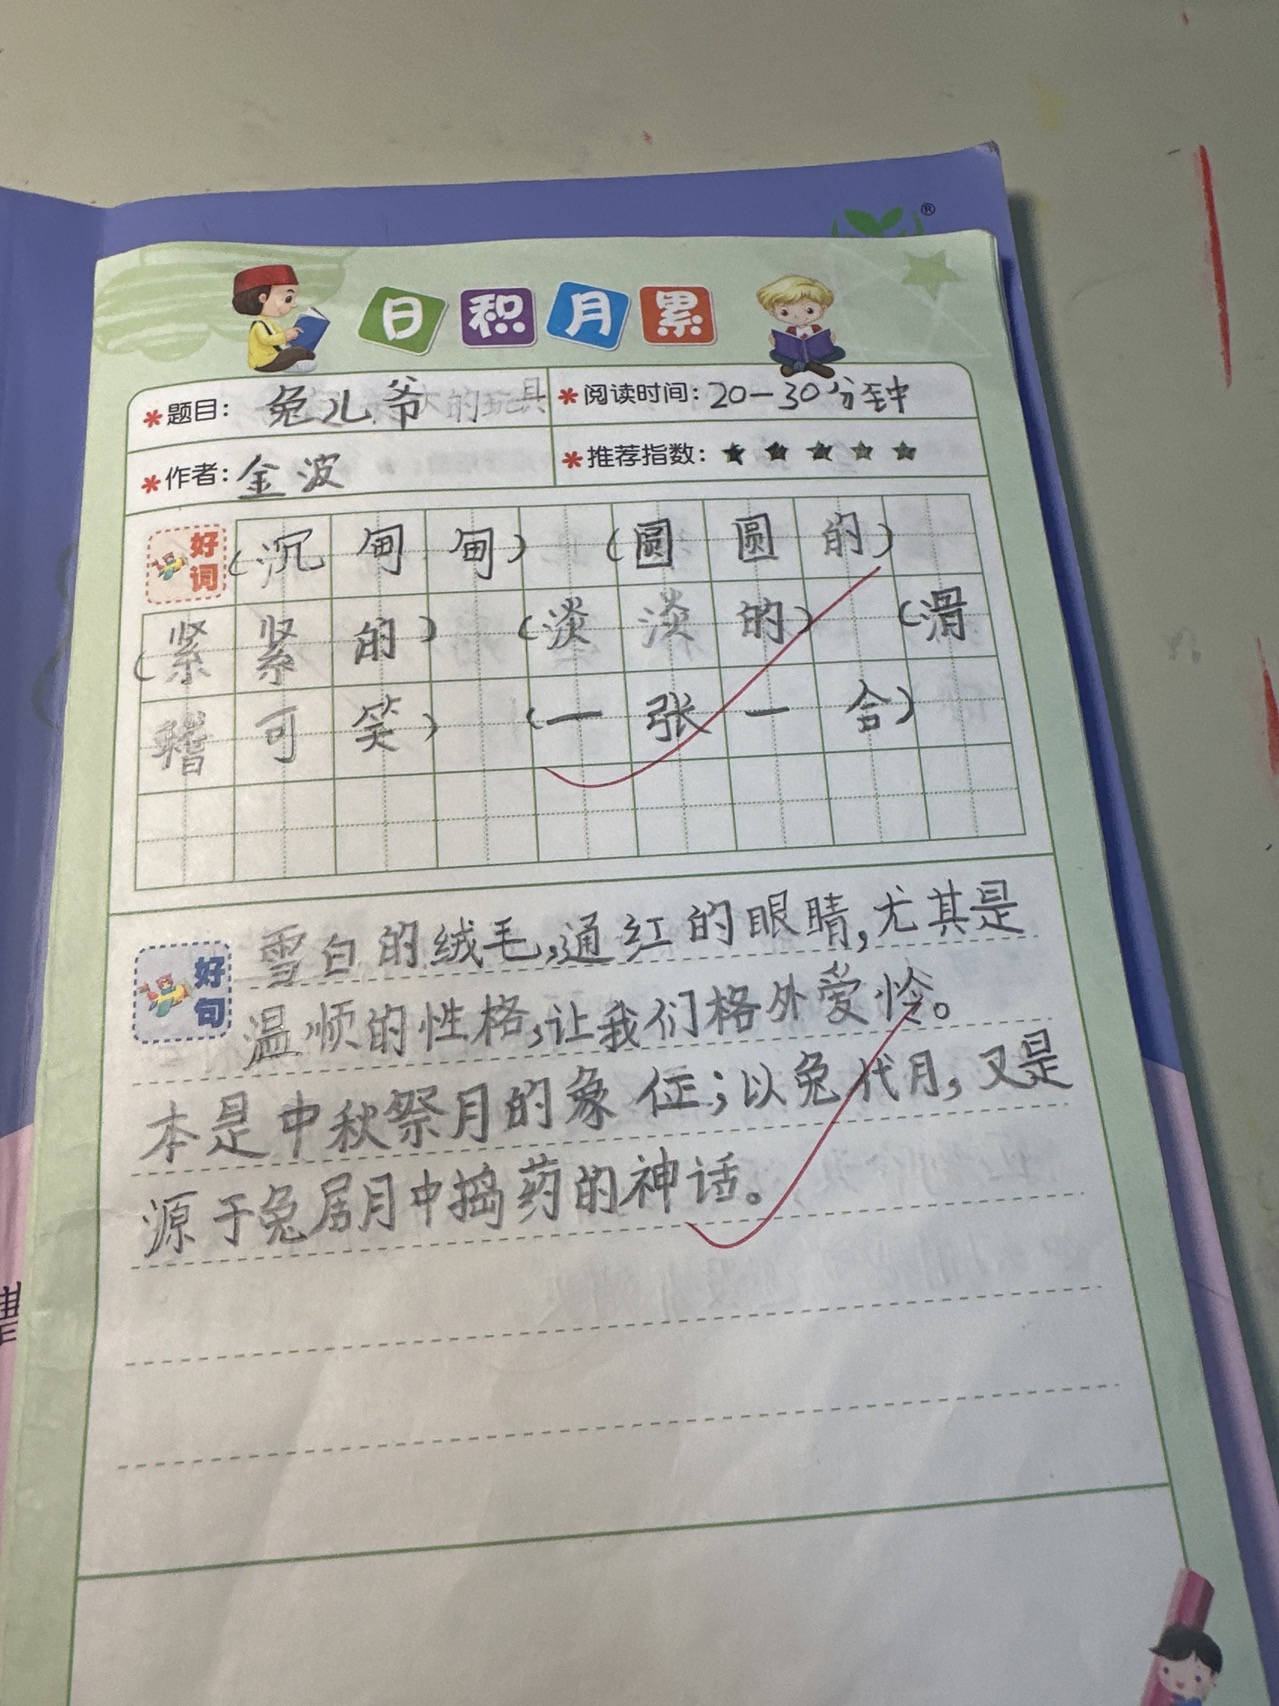 日积月累
*题目: 兔儿爷
*阅读时间: 20-30分钟
*作者: 金波
*推荐指数: ★ ★ ★ ★ ★
好词
(沉甸甸) (圆圆的)
(紧紧的) (淡淡的) (滑
稽可笑) (一张一合)
好句
雪白的绒毛,通红的眼睛,尤其是
温顺的性格,让我们格外爱怜。
本是中秋祭月的象征;以兔代月,又是
源于兔居月中捣药的神话。